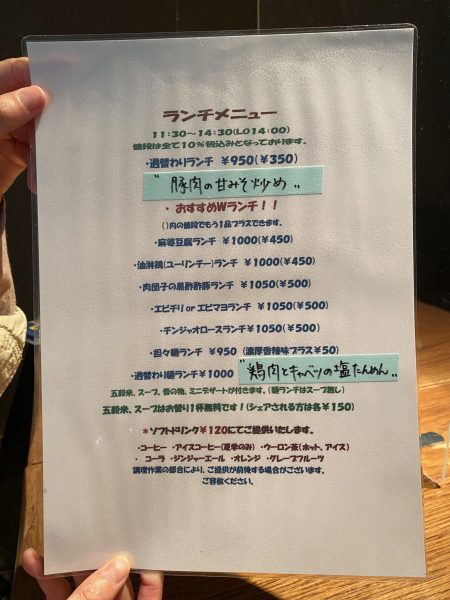 ランチメニュー
11:30~14:30(LO14:00)
値段は全て10%税込みとなっております。
・週替わりランチ ¥950(¥350)
"豚肉の甘みそ炒め"
・おすすめWランチ！！
()内の値段でもう1品プラスできます。
・麻婆豆腐ランチ ¥1000(¥450)
・油淋鶏(ユーリンチー)ランチ ¥1000(¥450)
・肉団子の黒酢酢豚ランチ ¥1050(¥500)
・エビチリorエビマヨランチ ¥1050(¥500)
・チンジャオロースランチ¥1050(¥500)
・担々麺ランチ ¥950 (濃厚香辣味プラス¥50)
・週替わり麺ランチ¥1000 "鶏肉とキャベツの塩たんめん"
五穀米、スープ、香の物、ミニデザートが付きます。(麺ランチはスープ無し)
五穀米、スープはお替り1杯無料です！(シェアされる方は各¥150)
*ソフトドリンク¥120にてご提供いたします。
・コーヒー ・アイスコーヒー(夏季のみ) ・ウーロン茶(ホット、アイス)
・コーラ ・ジンジャーエール ・オレンジ ・グレープフルーツ
調理作業の都合により、ご提供が前後する場合がございます。
ご容赦ください。